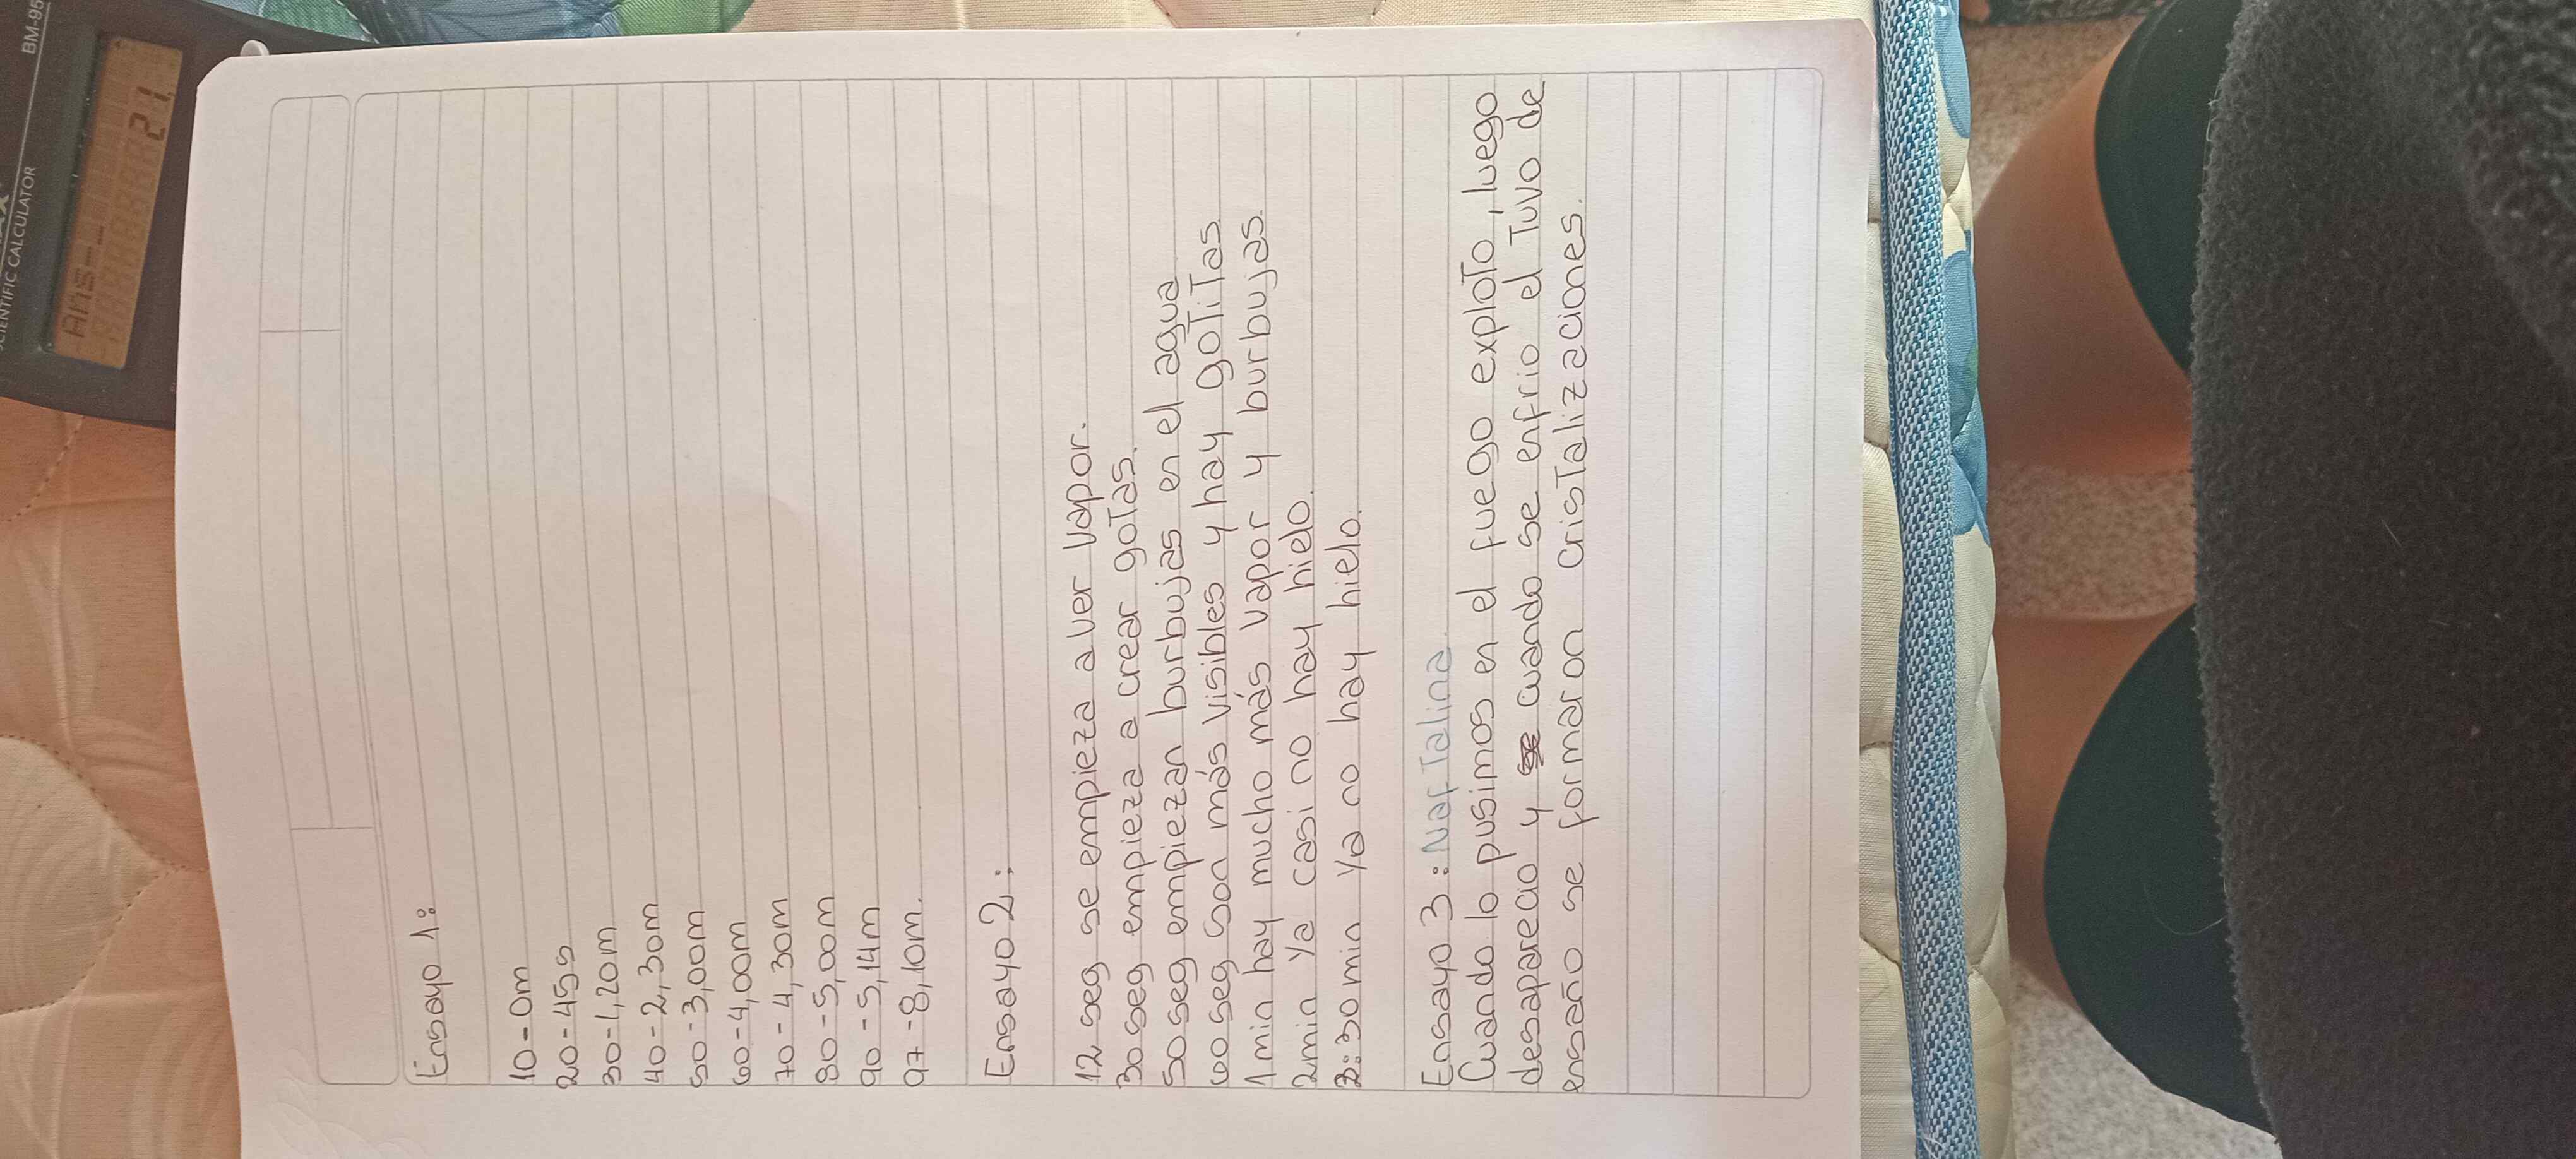 BM-95
SCIENTIFIC CALCULATOR
Ans
21.
Ensayo 1:
10-0m
20-45s
30-1,20m
40-2,30m
50-3,00m
60-4,00m
70-4,30m
80-5,00m
90-5,14m
97-8,10m.
Ensayo 2:
12 seg se empieza a ver vapor.
30 seg empieza a crear gotas.
50 seg empiezan burbujas en el agua
60 seg son más visibles y hay gotitas
1min hay mucho más vapor y burbujas.
2min ya casi no hay hielo.
2:30min ya no hay hielo.
Ensayo 3: Naftalina.
Cuando lo pusimos en el fuego exploto, luego
desaparecio y cuando se enfrio el tuvo de
ensaño se formaron cristalizaciones.